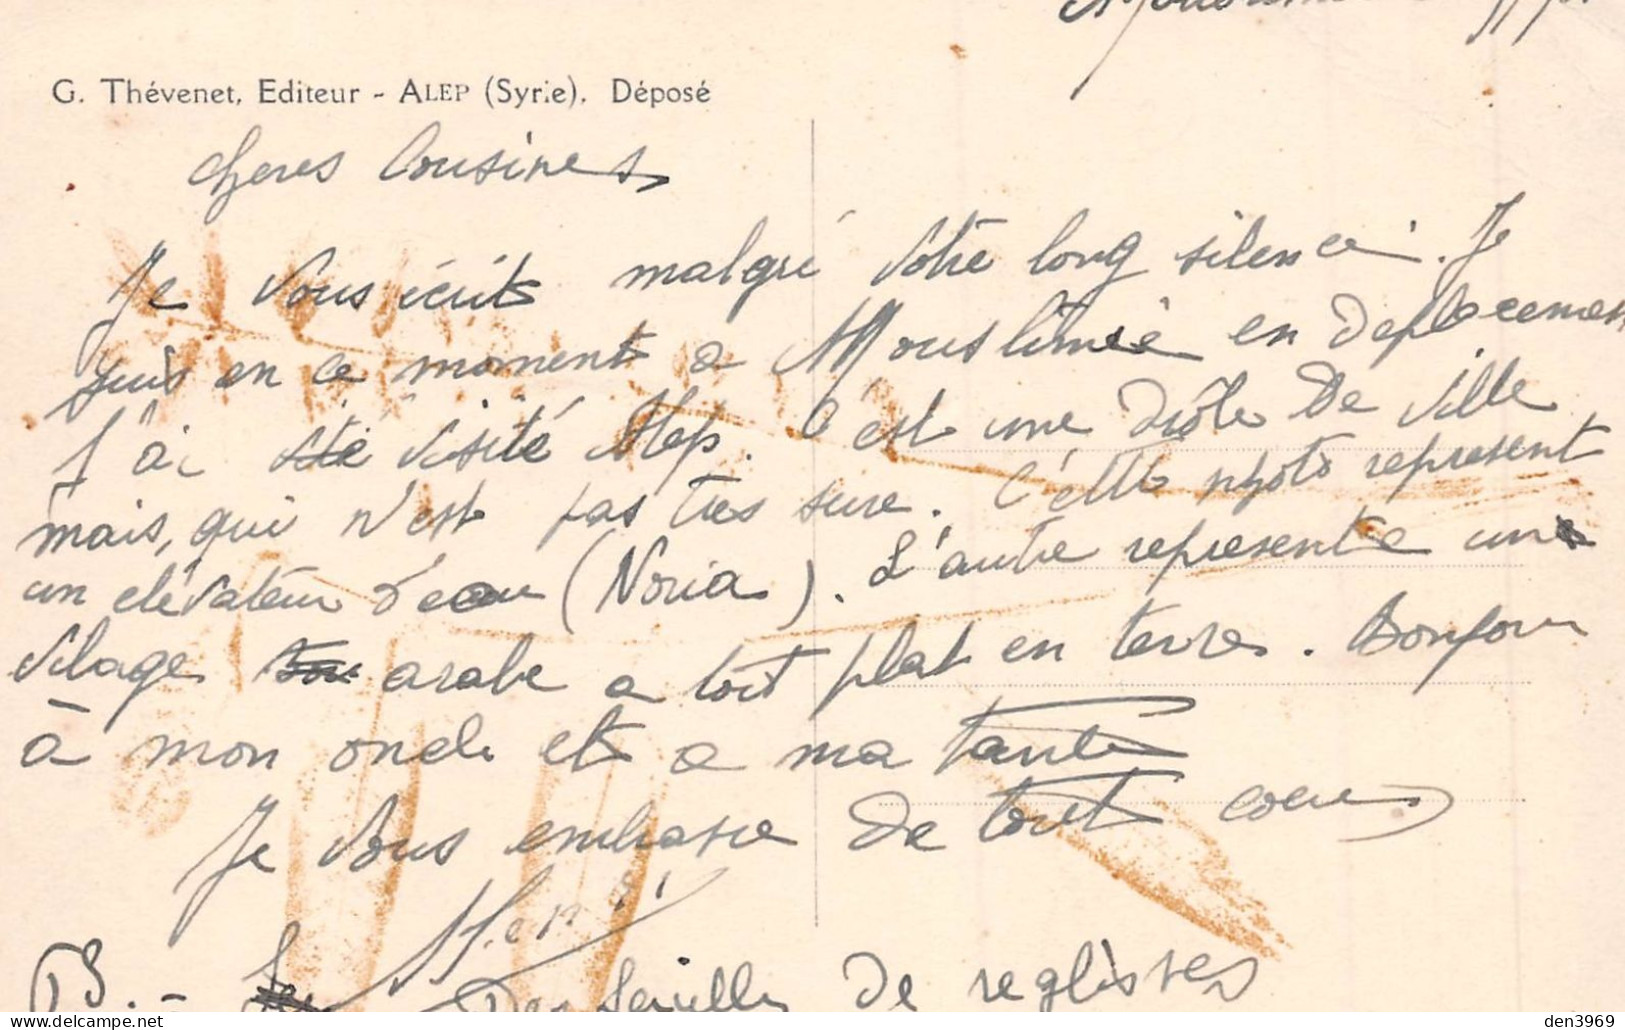 G. Thévenet, Editeur - ALEP (Syrie), Déposé
cheres Cousines,
Je vous écrit malgré votre long silence. Je
suis en ce moment a Mouslimié en deplacement
J'ai été visité Alep. C'est une drôle de ville
mais, qui n'est pas tres sure. C'ette photo represent
un elévateur d'eau (Noria). L'autre represente un
vilage arabe a toit plat en terre. Bonjour
à mon oncle et a ma tante
Je vous embrasse de tout coeur
Henri
PS. - Des feuilles de reglisses
den3969
delcampe.net